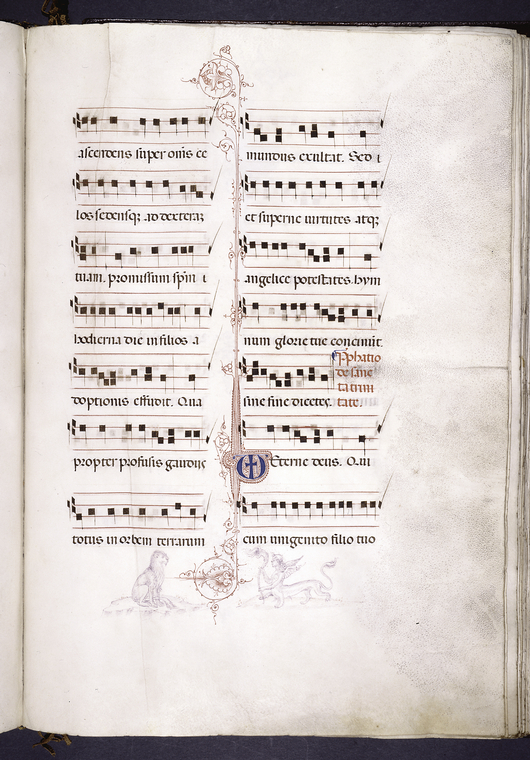 ascendens super om̄s ce
los sedensq; ad dexterā
tuam. promissum sp̄m i
hodierna die in filios a
doptionis effudit. Qua
propter profusis gaudiis
totus in orbem terrarum
mundus exultat. Sed i
et superne uirtutes atq;
angelice potestates. hym
num glorie tue concinūt.
sine fine dicētes.
P̄phatio
de sanc
ta trini
tate.
Eterne deus. Qui
cum unigenito filio tuo